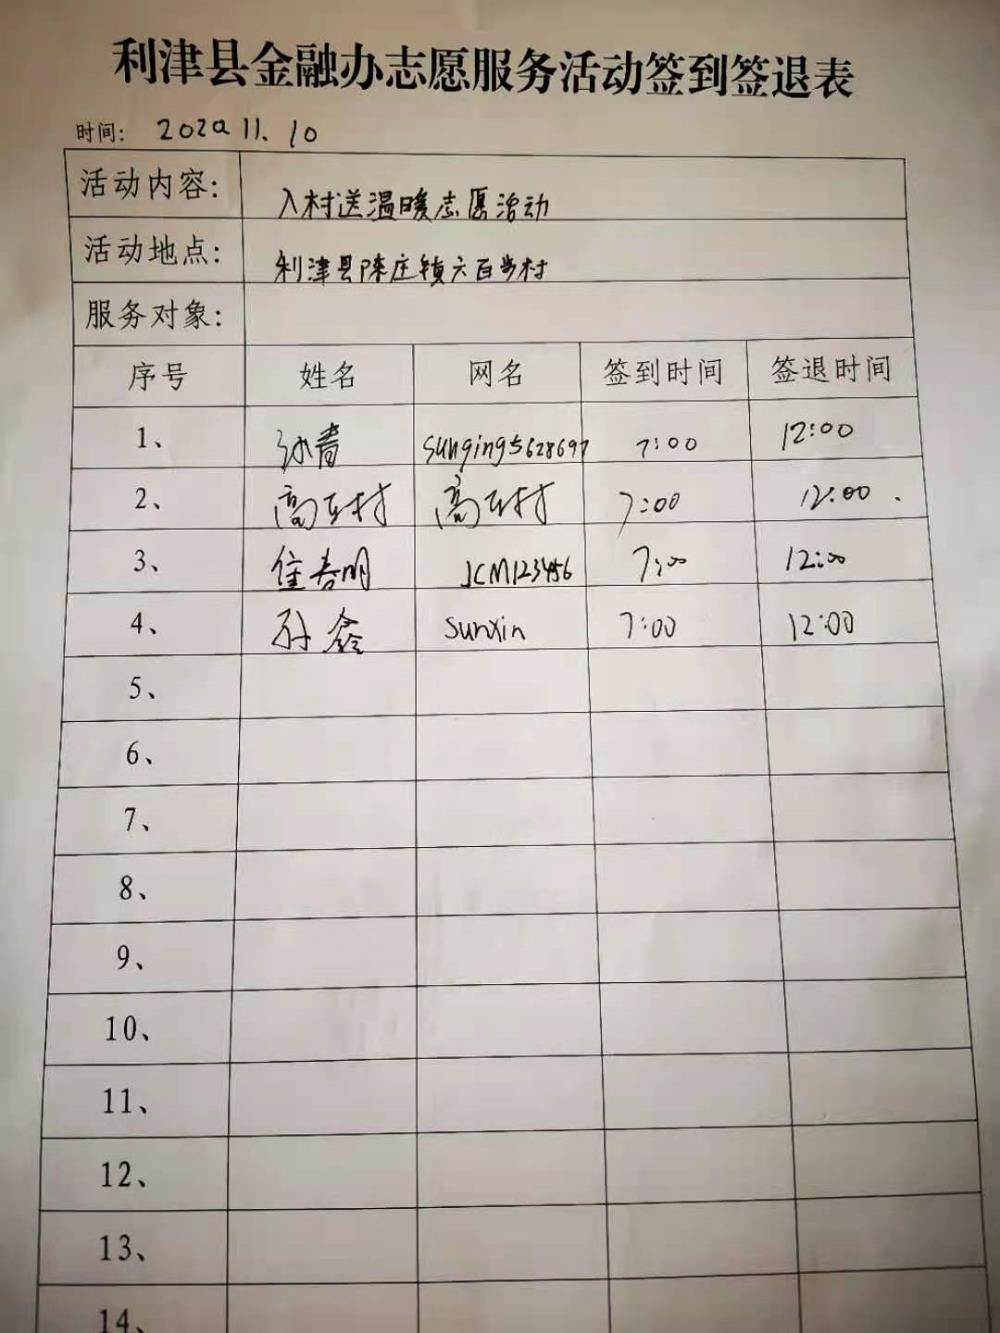 利津县金融办志愿服务活动签到签退表
时间: 2020 11. 10
活动内容: 入村送温暖志愿活动
活动地点: 利津县陈庄镇六百步村
服务对象:
序号 姓名 网名 签到时间 签退时间
1、 孙青 sunqing5628697 7:00 12:00
2、 7:00 12:00
3、 JCM123456 7:00 12:00
4、 孙鑫 sunxin 7:00 12:00
5、
6、
7、
8、
9、
10、
11、
12、
13、
14、